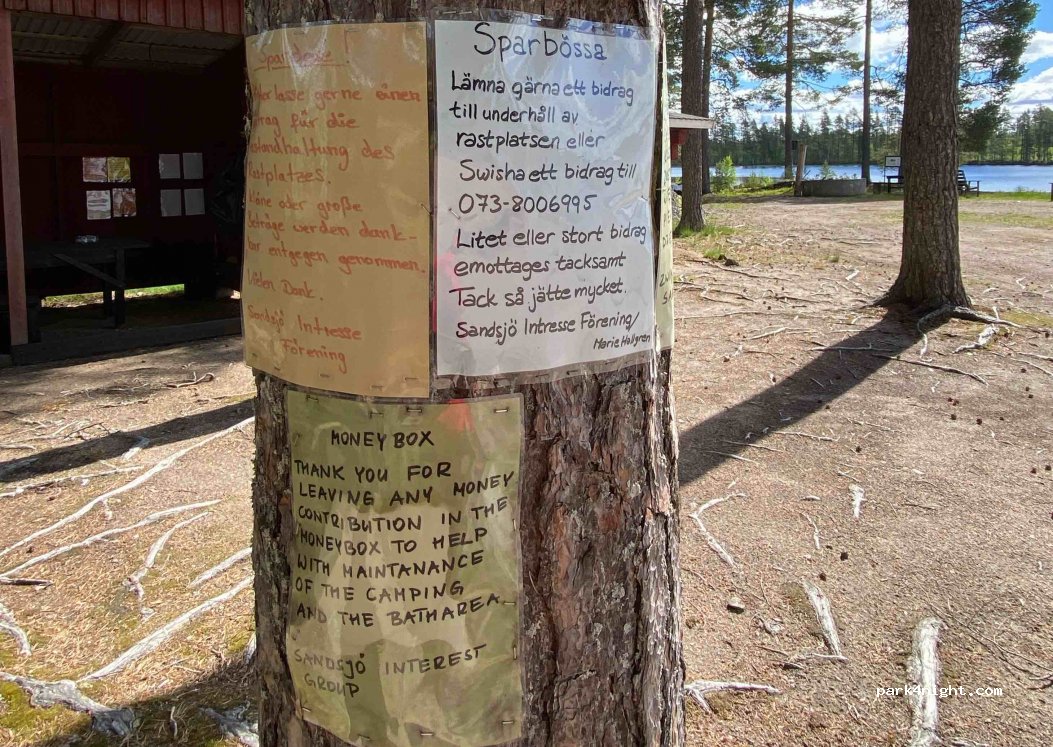 Spardose!
Hinterlasse gerne einen
Beitrag für die
Instandhaltung des
Rastplatzes.
Kleine oder große
Beträge werden dank-
bar entgegen genommen.
Vielen Dank.
Sandsjö Intresse
Förening
Sparbössa
Lämna gärna ett bidrag
till underhåll av
rastplatsen eller
Swisha ett bidrag till
073-8006995
Litet eller stort bidrag
emottages tacksamt
Tack så jätte mycket.
Sandsjö Intresse Förening/
Marie Hallgren
MONEY BOX
THANK YOU FOR
LEAVING ANY MONEY
CONTRIBUTION IN THE
MONEYBOX TO HELP
WITH MAINTANANCE
OF THE CAMPING
AND THE BATHAREA
SANDSJÖ INTEREST
GROUP
park4night.com